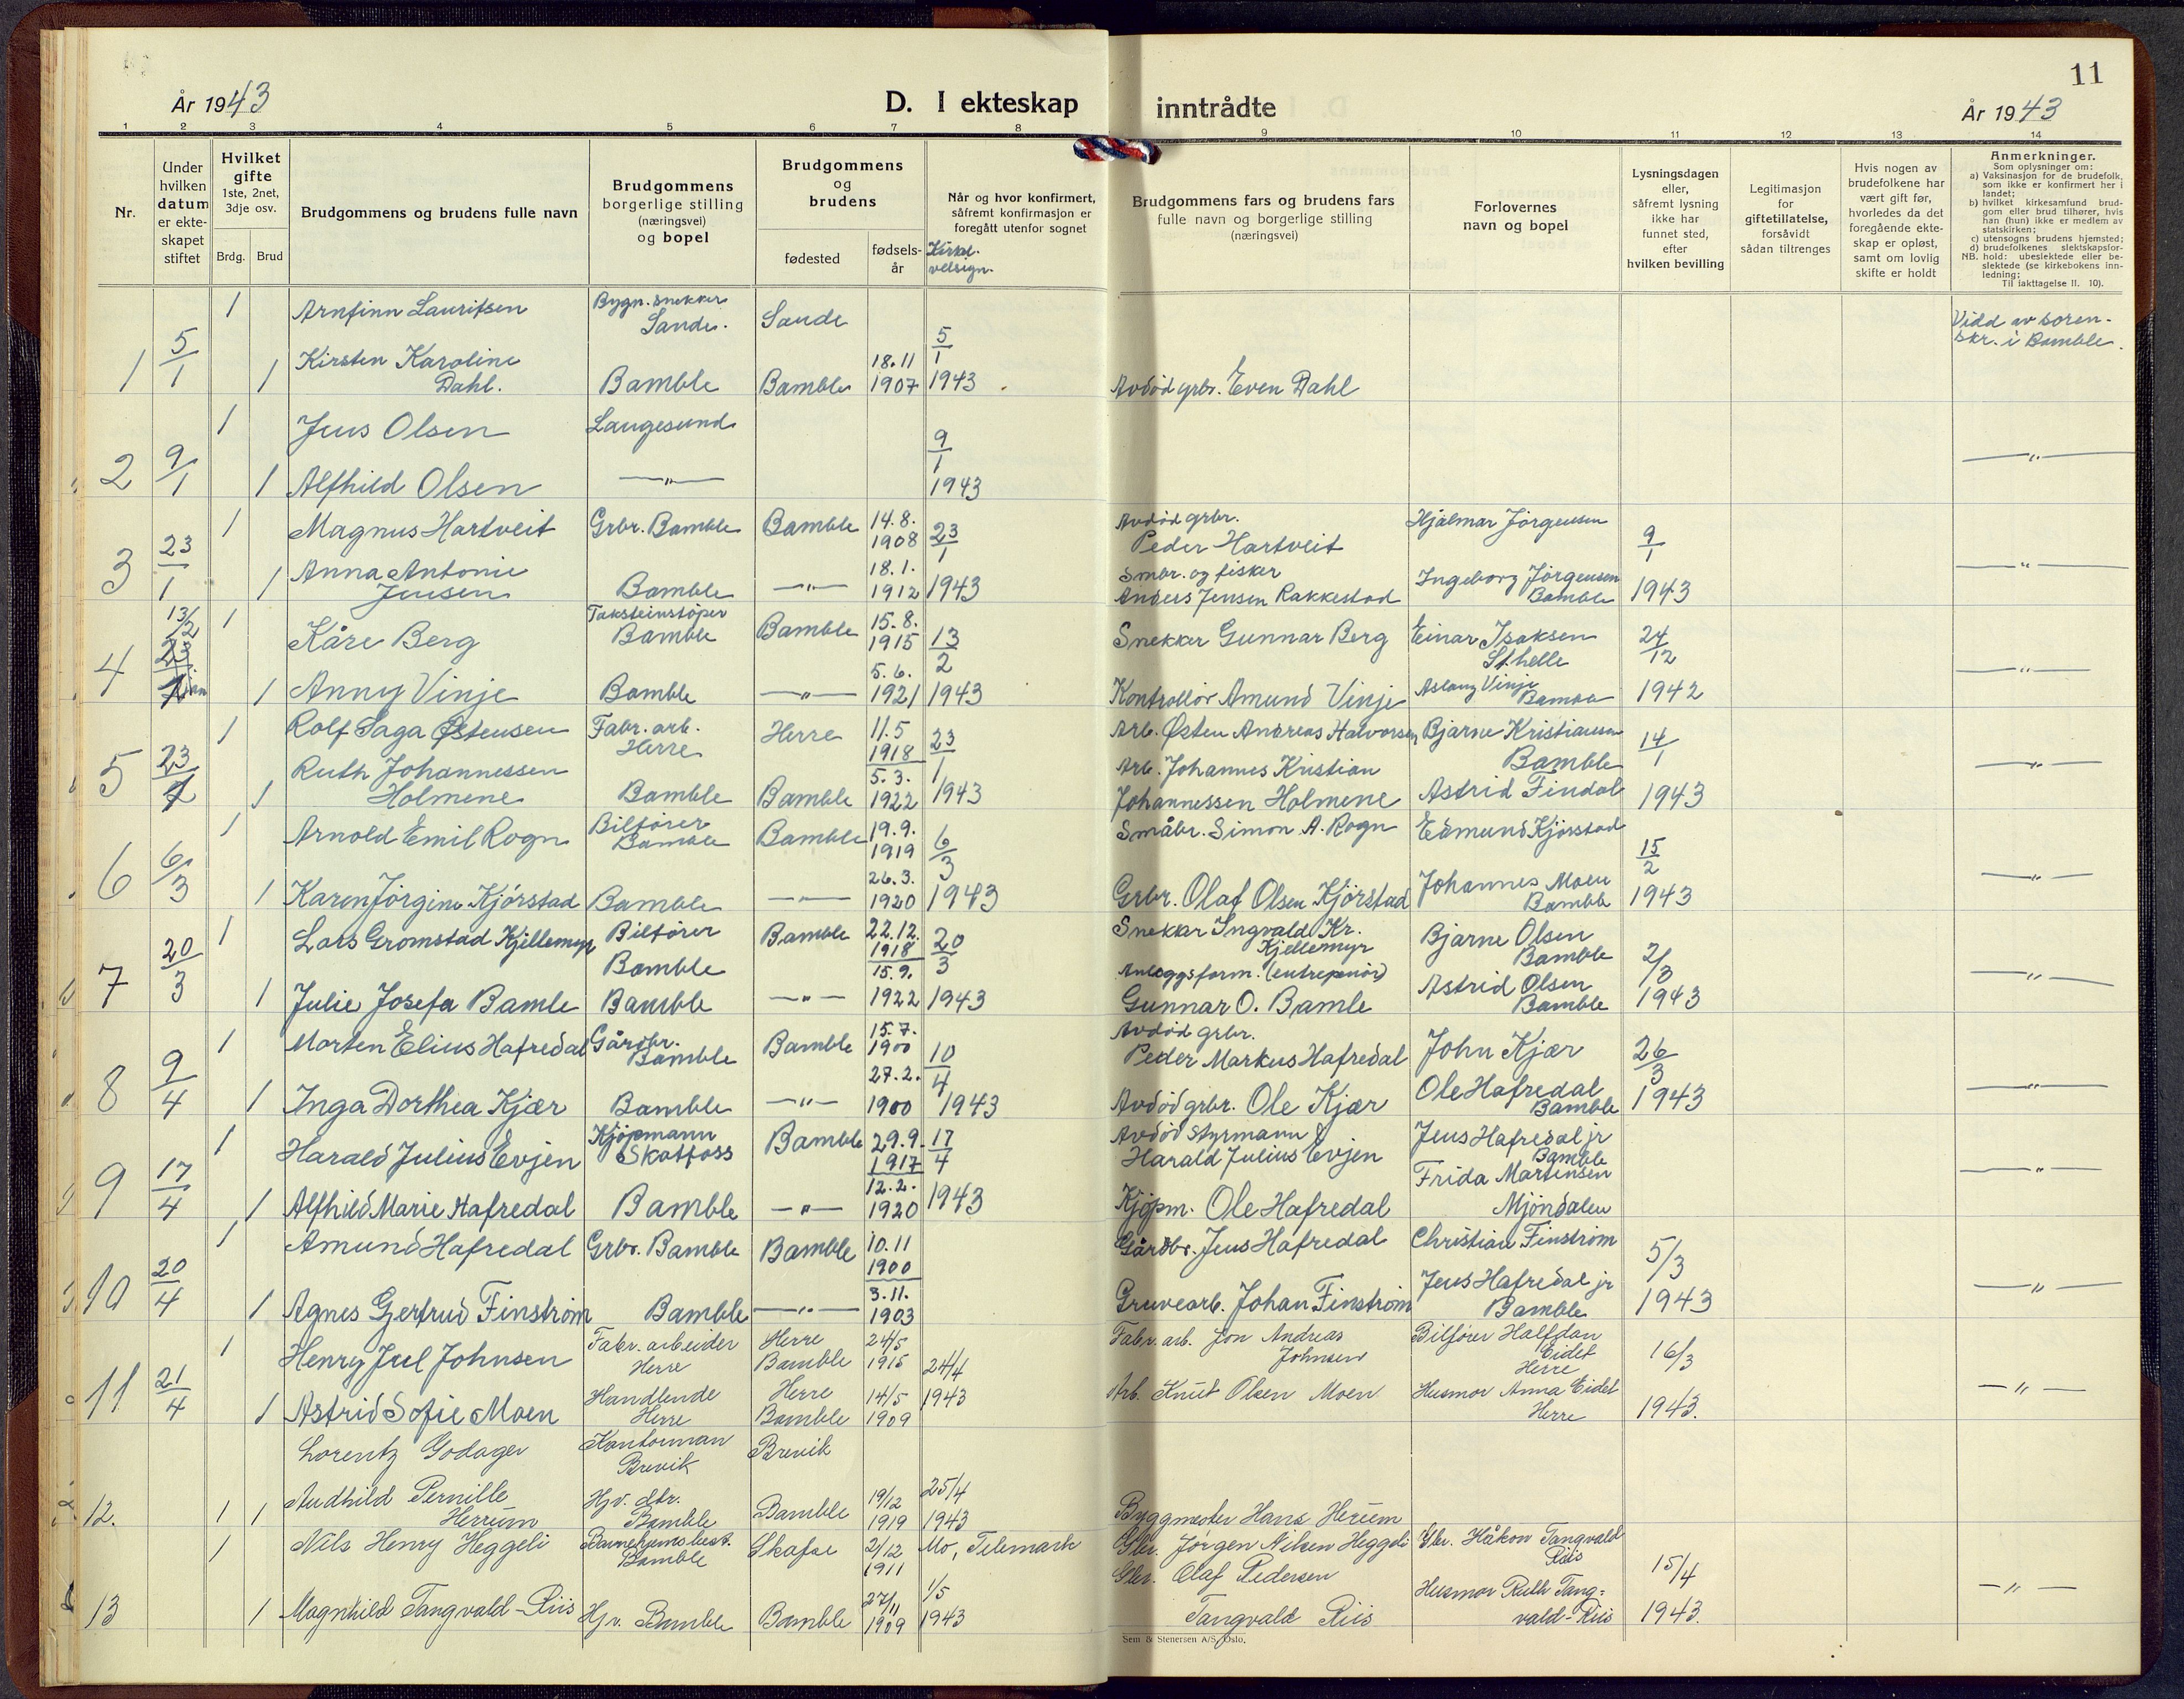 År 1943
D. I ekteskap
inntrådte
År 1943
11
1 2 3 4 5 6 7 8 9 10 11 12 13 14
Nr.
Under
hvilken
datum
er ekte-
skapet
stiftet
Hvilket
gifte
1ste, 2net,
3dje osv.
Brdg. Brud
Brudgommens og brudens fulle navn
Brudgommens
borgerlige stilling
(næringsvei)
og bopel
Brudgommens
og
brudens
fødested
fødsels-
år
Når og hvor konfirmert,
såfremt konfirmasjon er
foregått utenfor sognet
Kirkl.
velsign.
Brudgommens fars og brudens fars
fulle navn og borgerlige stilling
(næringsvei)
Forlovernes
navn og bopel
Lysningsdagen
eller,
såfremt lysning
ikke har
funnet sted,
efter
hvilken bevilling
Legitimasjon
for
giftetillatelse,
forsåvidt
sådan tiltrenges
Hvis nogen av
brudefolkene har
vært gift før,
hvorledes da det
foregående ekte-
skap er opløst,
samt om lovlig
skifte er holdt
Anmerkninger.
Som oplysninger om:
a) Vaksinasjon for de brudefolk,
som ikke er konfirmert her i
landet;
b) hvilket kirkesamfund brud-
gom eller brud tilhører, hvis
han (hun) ikke er medlem av
statskirken;
c) utensogns brudens hjemsted;
d) brudefolkenes slektskapsfor-
NB. hold: ubeslektede eller be-
slektede (se kirkebokens inn-
ledning;
Til iakttagelse II. 10).
1 5/1 1 Arnfinn Lauritsen Bygn. snekker Sande. Sande 5/1 Vidd av soren-
skr. i Bamble.
1 Kirsten Karoline
Dahl. Bamble Bamble 18.11 1907 1943 Avdød grbr. Even Dahl
2 9/1 1 Jens Olsen Langesund 9/1 — " —
1 Alfhild Olsen — " — 1943
3 23/1 1 Magnus Hartveit Grbr. Bamble Bamble 14.8. 1908 23/1 Avdød grbr.
Peder Hartveit Hjalmar Jørgensen 9/1 — " —
1 Anna Antonie
Jensen Bamble — " — 18.1. 1912 1943 Smbr. og fisker
Anders Jensen Rakkestad Ingeborg Jørgensen Bamble 1943
4 13/2 1 Kåre Berg Taksteinstøper Bamble Bamble 15.8. 1915 13/2 Snekker Gunnar Berg Einar Isaksen St.helle 24/12 — " —
1 Anny Vinje Bamble — " — 5.6. 1921 1943 Kontrollør Amund Vinje Aslaug Vinje Bamble 1942
5 23/1 1 Rolf Saga Østensen Fabr. arb. Herre Herre 11.5 1918 23/1 Arb. Østen Andreas Halvorsen Bjarne Kristiansen Bamble 14/1 — " —
1 Ruth Johannessen
Holmene Bamble Bamble 5.3. 1922 1943 Arb. Johannes Kristian
Johannessen Holmene Astrid Findal 1943
6 6/3 1 Arnold Emil Rogn Bilfører Bamble Bamble 19.9. 1919 6/3 Småbr. Simon A. Rogn Edmund Kjørstad 15/2 — " —
1 Karen Jørgine Kjørstad Bamble — " — 26.3. 1920 1943 Grbr. Olaf Olsen Kjørstad Johannes Moen Bamble 1943
7 20/3 1 Lars Gromstad Kjellemyr Bilfører Bamble Bamble 22.12. 1918 20/3 Snekker Ingvald Kr.
Kjellemyr Bjarne Olsen Bamble 2/3 — " —
1 Julie Josefa Bamle Bamble — " — 15.9. 1922 1943 Anleggsform. (entreprenør)
Gunnar O. Bamle Astrid Olsen Bamble 1943
8 9/4 1 Morten Elius Hafredal Gårdbr. Bamble Bamble 15.7. 1900 10/4 Avdød grbr.
Peder Markus Hafredal John Kjær 26/3 — " —
1 Inga Dorthea Kjær Bamble — " — 27.2. 1900 1943 Avdød grbr. Ole Kjær Ole Hafredal Bamble 1943
9 17/4 1 Harald Julius Evjen Kjøpmann Skotfoss Bamble 29.9. 1917 17/4 Avdød styrmann
Harald Julius Evjen Jens Hafredal jr Bamble — " —
1 Alfhild Marie Hafredal Bamble — " — 12.2. 1920 1943 Kjøpm. Ole Hafredal Frida Martinsen Mjøndalen
10 20/4 1 Amund Hafredal Grbr. Bamble Bamble 10.11 1900 Gårdbr. Jens Hafredal Christian Finstrøm 5/3 — " —
1 Agnes Gertrud Finstrøm Bamble — " — 3.11. 1903 Gruvearb. Johan Finstrøm Jens Hafredal jr Bamble 1943
11 21/4 1 Henry Juel Johnsen Fabr. arbeider Herre Herre Bamble 24/5 1915 24/4 Fabr. arb. Jon Andreas
Johnsen Bilfører Halfdan Eidet Herre 16/3 — " —
1 Astrid Sofie Moen Handlende Herre Herre Bamble 14/5 1909 1943 Arb. Knut Olsen Moen Husmor Anna Eidet Herre 1943.
12. 1 Lorentz Godager Kontorman Brevik Brevik 25/4
1 Audhild Pernille
Herrum Hjv. dtr. Bamble Bamble 19/12 1919 1943 Byggmester Hans Herum
13 1 Nils Henry Heggeli Barnehjemsbest. Bamble Skafse 2/12 1911 Mo, Telemark Gbr. Jørgen Nilsen Heggeli Gbr. Håkon Tangvald
Riis 15/4 — " —
1 Magnhild Tangvald-Riis Hjv. Bamble Bamble 27/11 1909 1/5 1943 Gbr. Olaf Pedersen
Tangvald Riis Husmor Ruth Tang-
vald-Riis 1943.
Sem & Stenersen A/S, Oslo.